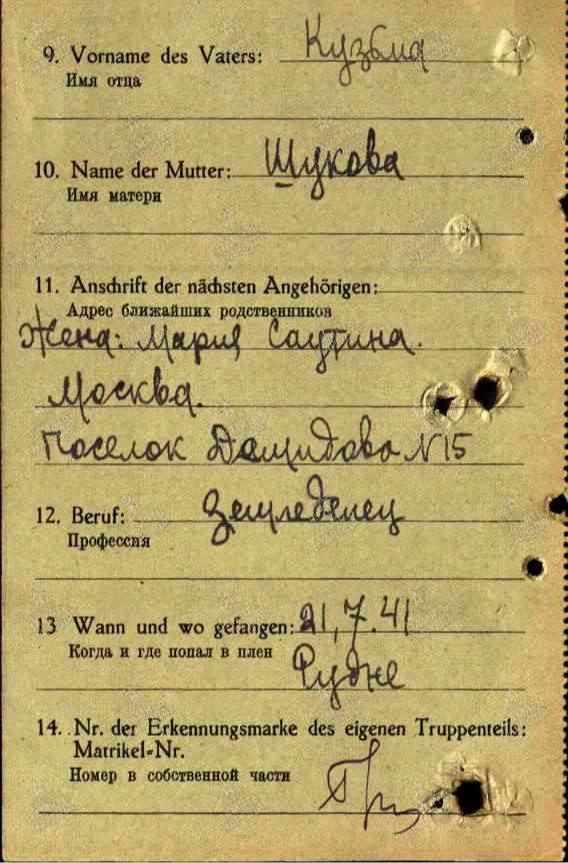 9. Vorname des Vaters: Кузьма
Имя отца
10. Name der Mutter: Шукова
Имя матери
11. Anschrift der nächsten Angehörigen:
Адрес ближайших родственников
Жена: Мария Саутина.
Москва.
Поселок Демидово N 15
12. Beruf: Земледелец
Профессия
13 Wann und wo gefangen: 21,7.41
Когда и где попал в плен
Рудне
14. Nr. der Erkennungsmarke des eigenen Truppenteils:
Matrikel-Nr.
Номер в собственной части